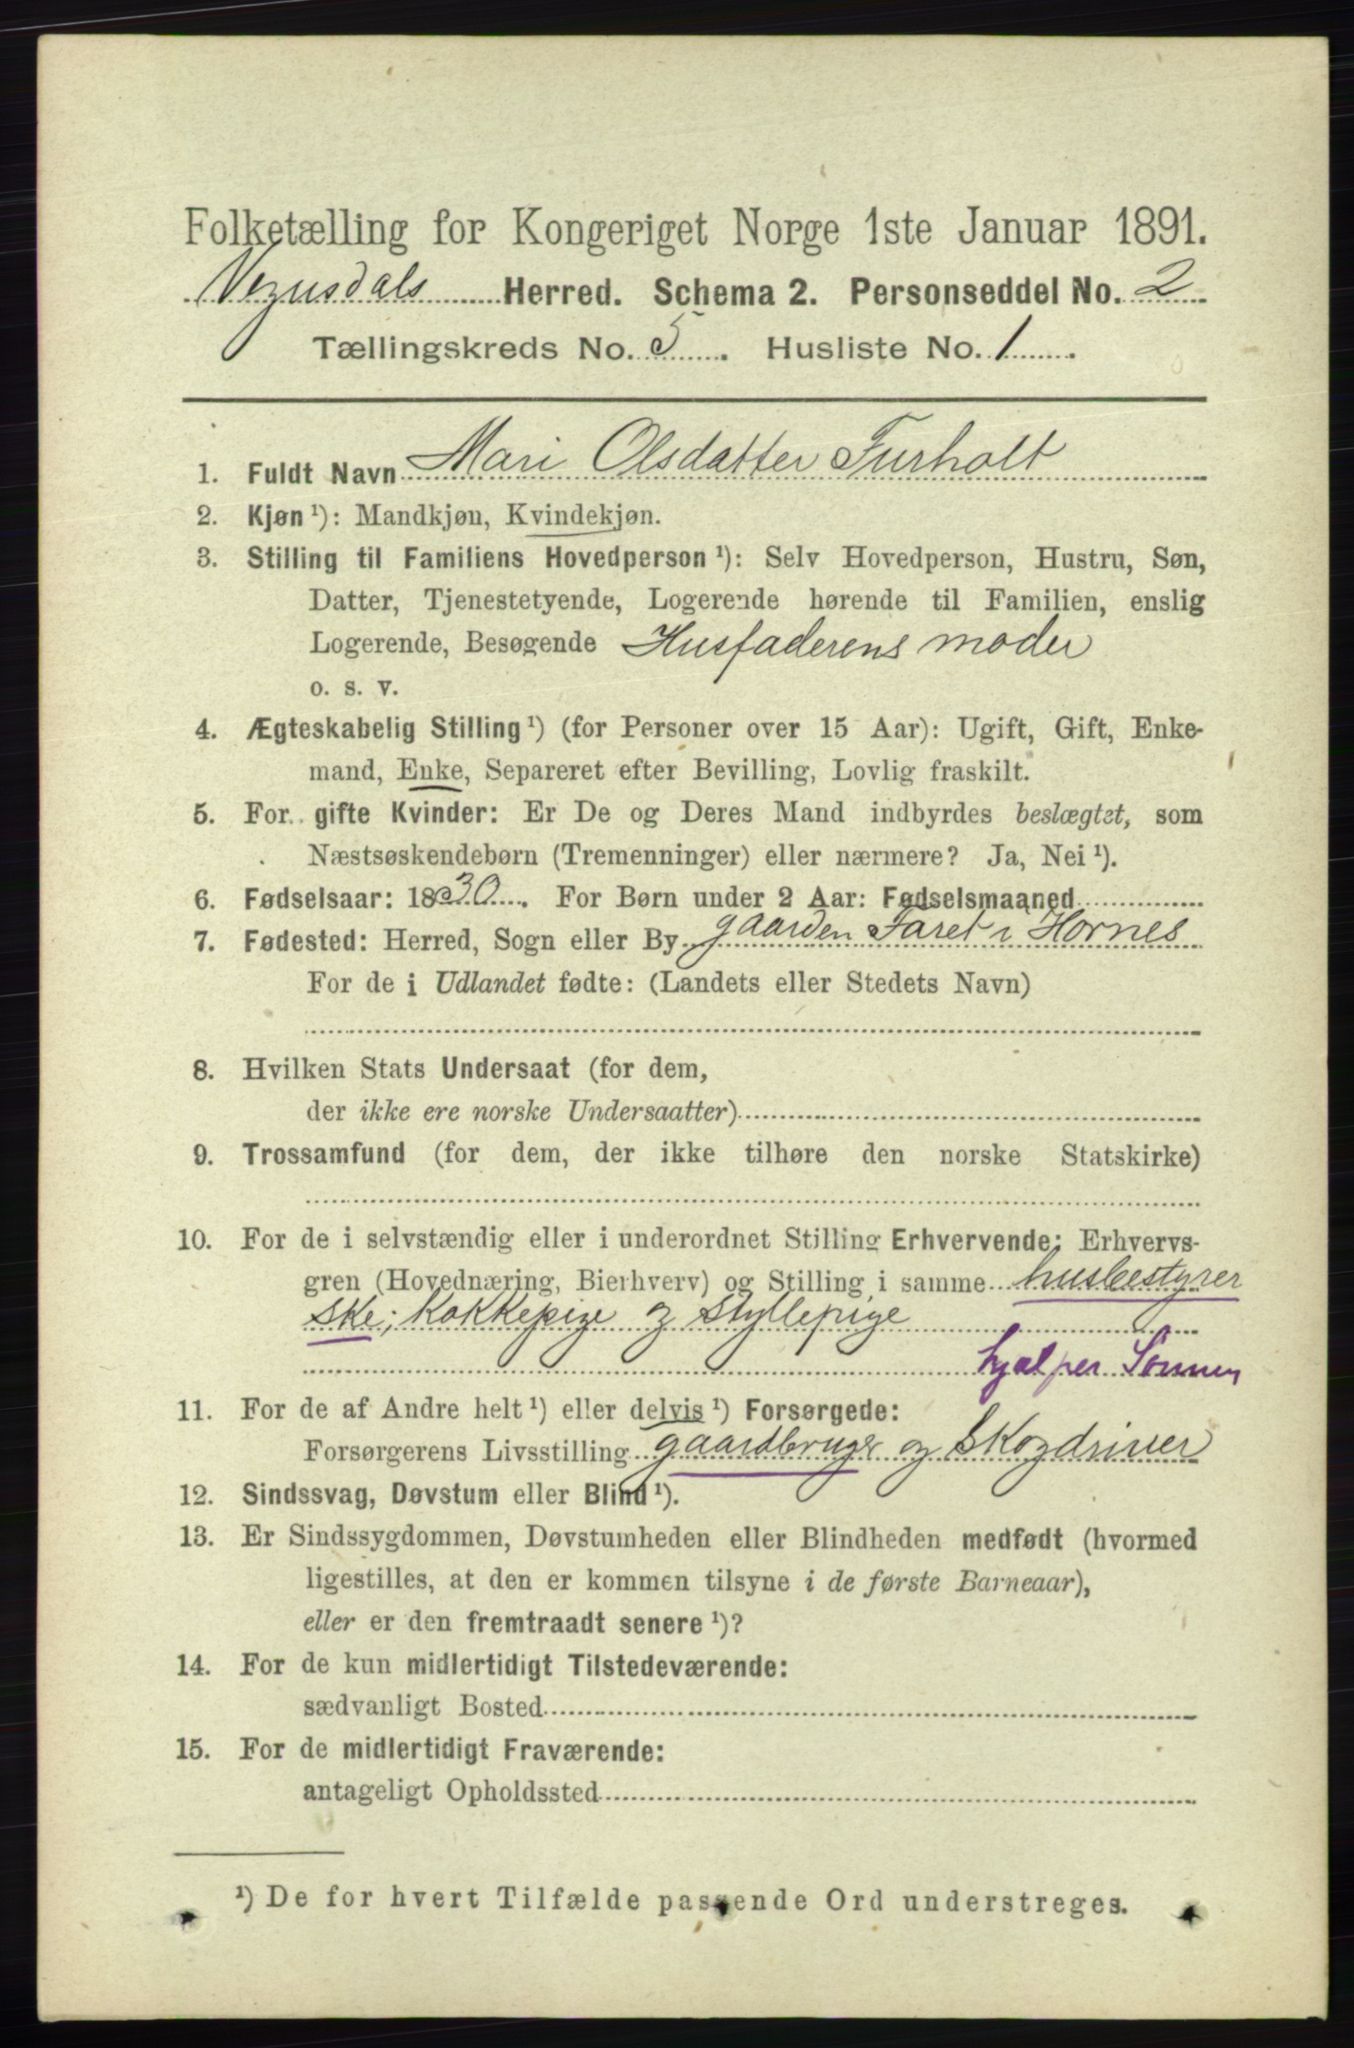 Folketælling for Kongeriget Norge 1ste Januar 1891.
Vegusdals Herred. Schema 2. Personseddel No. 2
Tællingskreds No. 5. Husliste No. 1.
1. Fuldt Navn Mari Olsdatter Furholt
2. Kjøn ¹): Mandkjøn, Kvindekjøn.
3. Stilling til Familiens Hovedperson ¹): Selv Hovedperson, Hustru, Søn,
Datter, Tjenestetyende, Logerende hørende til Familien, enslig
Logerende, Besøgende Husfaderens moder
o. s. v.
4. Ægteskabelig Stilling ¹) (for Personer over 15 Aar): Ugift, Gift, Enke-
mand, Enke, Separeret efter Bevilling, Lovlig fraskilt.
5. For gifte Kvinder: Er De og Deres Mand indbyrdes beslægtet, som
Næstsøskendebørn (Tremenninger) eller nærmere? Ja, Nei ¹).
6. Fødselsaar: 1830. For Børn under 2 Aar: Fødselsmaaned
7. Fødested: Herred, Sogn eller By gaarden Faret i Hornes
For de i Udlandet fødte: (Landets eller Stedets Navn)
8. Hvilken Stats Undersaat (for dem,
der ikke ere norske Undersaatter)
9. Trossamfund (for dem, der ikke tilhøre den norske Statskirke)
10. For de i selvstændig eller i underordnet Stilling Erhvervende: Erhvervs-
gren (Hovednæring, Bierhverv) og Stilling i samme husbestyrer
ske; kokkepige og styllepige
hjælper Sønnen
11. For de af Andre helt ¹) eller delvis ¹) Forsørgede:
Forsørgerens Livsstilling gaardbruger og Skogdriver
12. Sindssvag, Døvstum eller Blind ¹).
13. Er Sindssygdommen, Døvstumheden eller Blindheden medfødt (hvormed
ligestilles, at den er kommen tilsyne i de første Barneaar),
eller er den fremtraadt senere ¹)?
14. For de kun midlertidigt Tilstedeværende:
sædvanligt Bosted
15. For de midlertidigt Fraværende:
antageligt Opholdssted
¹) De for hvert Tilfælde passende Ord understreges.